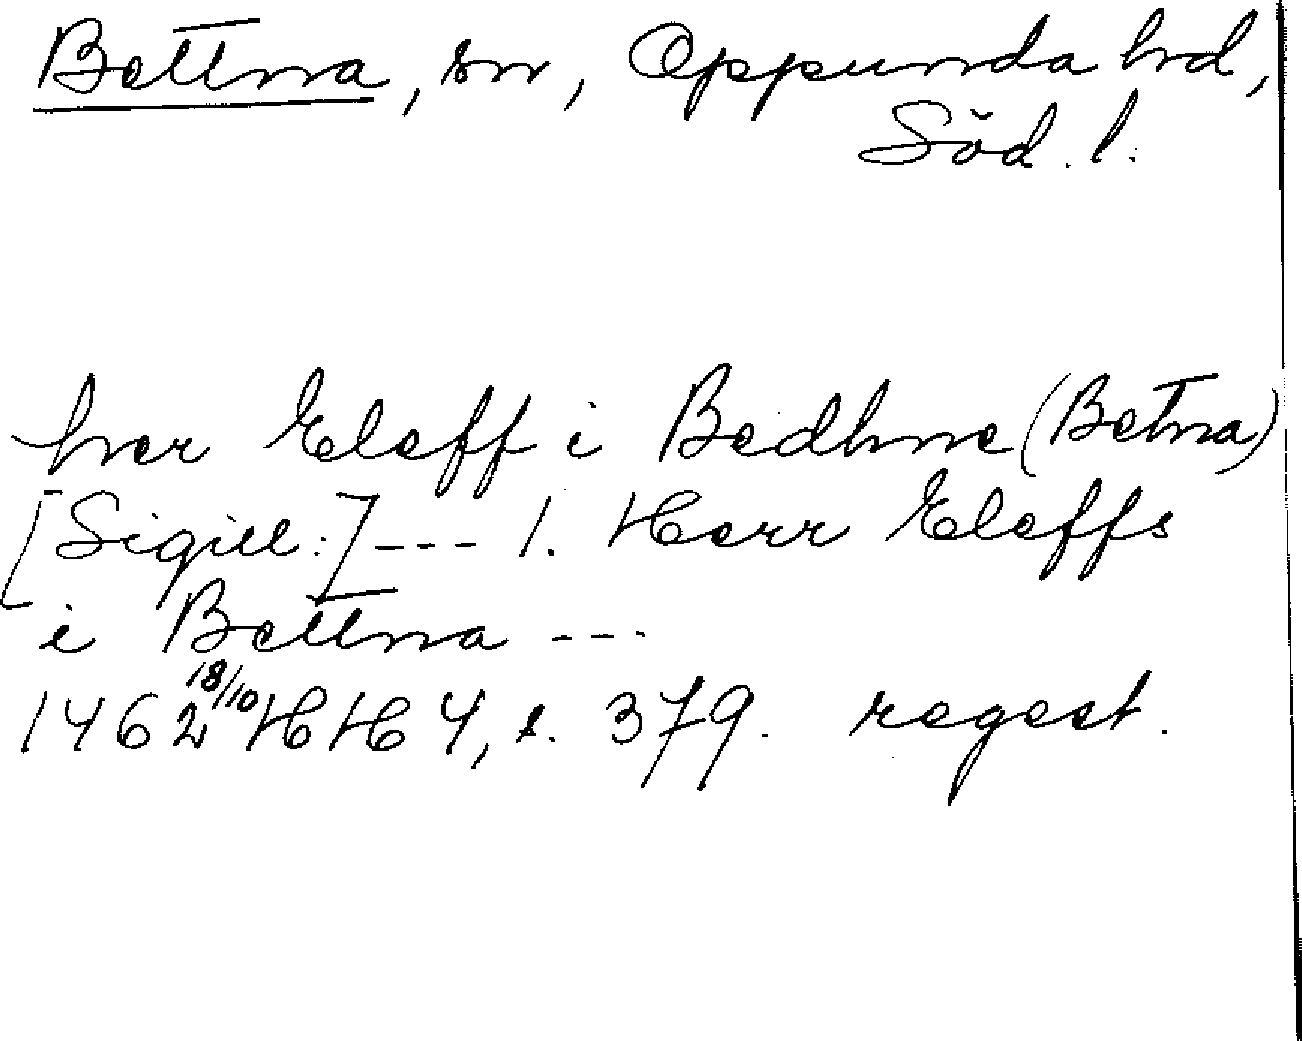 Bettna, sn, Oppunda hd,
Söd. l.
her Eleff i Bedhne (Betna)
[Sigill:] --- 1. Herr Eleffs
i Bettna ---
1462 18/10 HH 4, s. 379. regest.